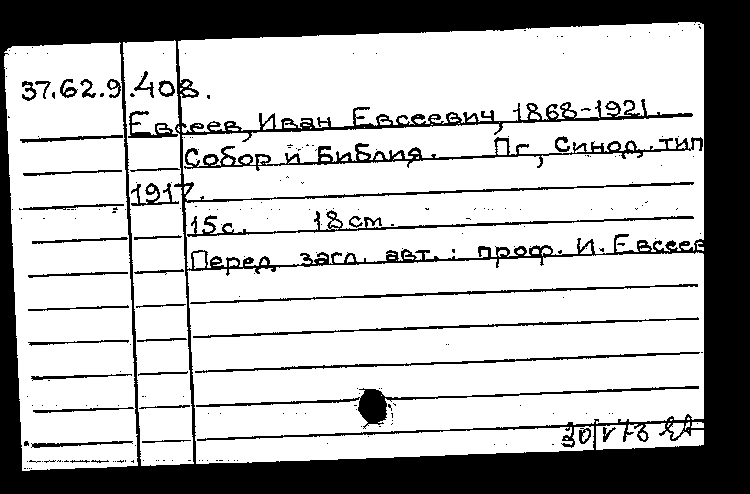 37.62.9.408.
Евсеев, Иван Евсеевич, 1868-1921.
Собор и Библия. Пг, Синод. тип
1917.
15с. 18см.
Перед загл. авт.: проф. И. Евсеев
30/V 73